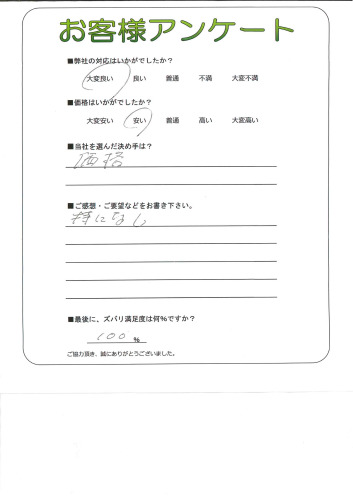 お客様アンケート
■弊社の対応はいかがでしたか?
大変良い 良い 普通 不満 大変不満
■価格はいかがでしたか?
大変安い 安い 普通 高い 大変高い
■当社を選んだ決め手は?
価格
■ご感想・ご要望などをお書き下さい。
特になし
■最後に、ズバリ満足度は何%ですか?
100 %
ご協力頂き、誠にありがとうございました。